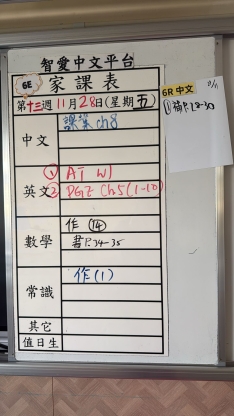 智愛中文平台
6E 家課表
第十三週 11月28日(星期五)
中文
課業 ch8
英文
① AT W1
② PGZ Ch5(1-10)
數學
作 ⑭
書P.34-35
常識
作(1)
其它
值日生
6R 中文